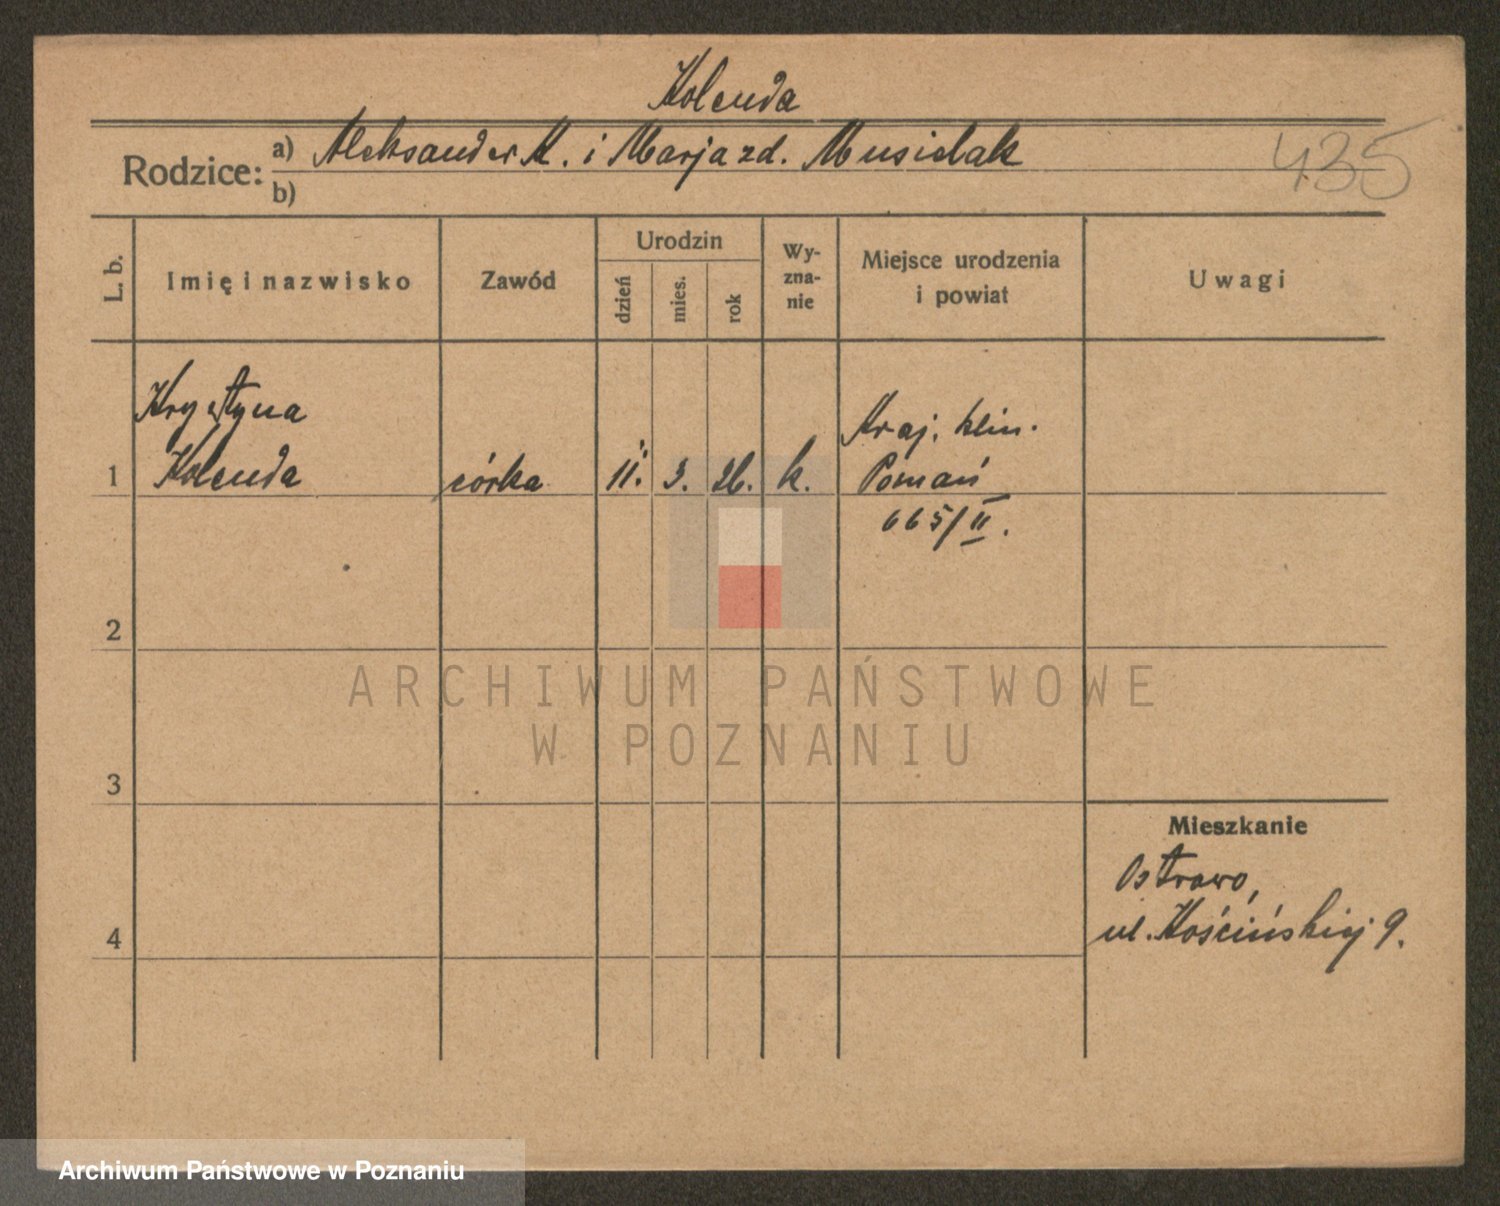 Kolenda
Rodzice:
a) Aleksander K. i Marja zd. Musielak
435
b)
L. b.
Imię i nazwisko
Zawód
Urodzin
dzień
mies.
rok
Wy-
zna-
nie
Miejsce urodzenia
i powiat
Uwagi
Krystyna
Kolenda
1
córka
11.
3.
26.
k.
Kraj. klin.
Poznań
665/II.
2
ARCHIWUM PAŃSTWOWE
W POZNANIU
3
Mieszkanie
Ostrowo,
ul. Kościńskiej 9.
4
Archiwum Państwowe w Poznaniu